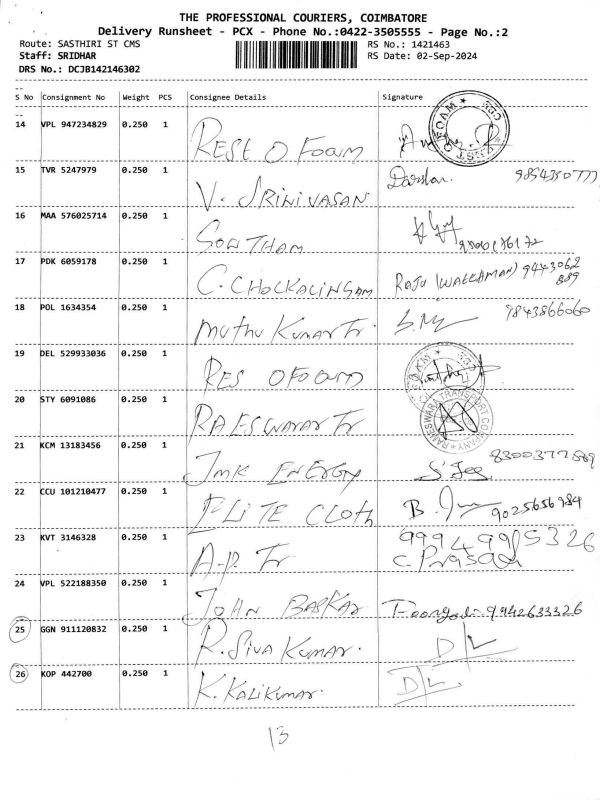 THE PROFESSIONAL COURIERS, COIMBATORE
Delivery Runsheet - PCX - Phone No.:0422-3505555 - Page No.:2
Route: SASTHIRI ST CMS RS No.: 1421463
Staff: SRIDHAR RS Date: 02-Sep-2024
DRS No.: DCJB142146302
S No Consignment No Weight PCS Consignee Details Signature
14 VPL 947234829 0.250 1 REST O Foam
15 TVR 5247979 0.250 1 V. SRINIVASAN Darshan. 9854350777
16 MAA 576025714 0.250 1 GOWTHAM
17 PDK 6059178 0.250 1 C. CHOCKALINGAM RAJU (WATCHMAN) 9443062
889
18 POL 1634354 0.250 1 Muthu Kumar Tr. 9843866060
19 DEL 529933036 0.250 1 RES OFoam
20 STY 6091086 0.250 1 RAESWARAR Tr RAMESWARA TRANSPORT COMPANY
21 KCM 13183456 0.250 1 JMK ENERGY 8300377889
22 CCU 101210477 0.250 1 ELITE CLOTH B. 9025656984
23 KVT 3146328 0.250 1 A.P. Tr 9994995326
C. Prasad
24 VPL 522188350 0.250 1 JOHN BASKAR 9942633326
25 GGN 911120832 0.250 1 R. SIVA KUMAR. D/L
26 KOP 442700 0.250 1 K. KALIKUMAR. D/L
13